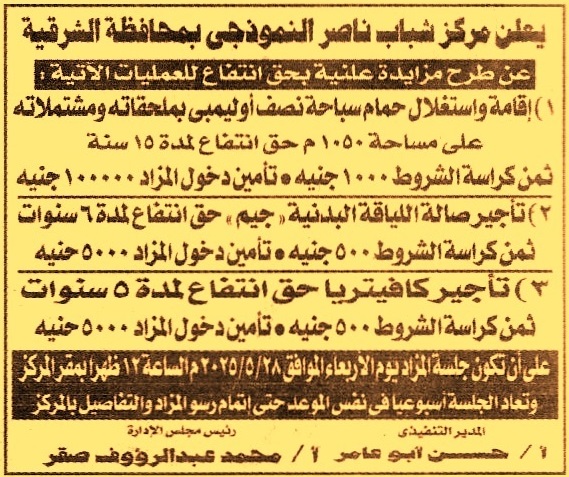 يعلن مركز شباب ناصر النموذجى بمحافظة الشرقية
عن طرح مزايدة علنية بحق انتفاع للعمليات الآتية :
١) إقامة واستغلال حمام سباحة نصف أوليمبى بملحقاته ومشتملاته
على مساحة ١٠٥٠ م حق انتفاع لمدة ١٥ سنة
ثمن كراسة الشروط ١٠٠٠ جنيه • تأمين دخول المزاد ١٠٠٠٠٠ جنيه
٢) تأجير صالة اللياقة البدنية « جيم » حق انتفاع لمدة ٦ سنوات
ثمن كراسة الشروط ٥٠٠ جنيه • تأمين دخول المزاد ٥٠٠٠ جنيه
٣) تأجير كافيتريا حق انتفاع لمدة ٥ سنوات
ثمن كراسة الشروط ٥٠٠ جنيه • تأمين دخول المزاد ٥٠٠٠ جنيه
على أن تكون جلسة المزاد يوم الأربعاء الموافق ٢٠٢٥/٥/٢٨ م الساعة ١٢ ظهرا بمقر المركز
وتعاد الجلسة أسبوعيا فى نفس الموعد حتى إتمام رسو المزاد والتفاصيل بالمركز
المدير التنفيذى رئيس مجلس الإدارة
أ / حسن أبو عامر أ / محمد عبدالرؤوف صقر